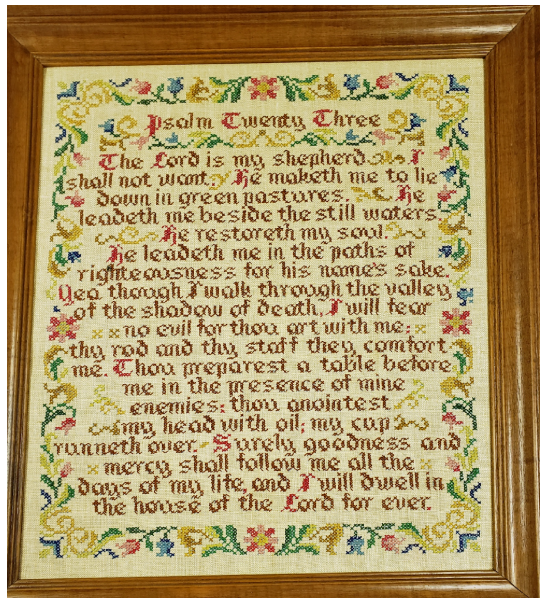 Psalm Twenty Three
The Lord is my shepherd I
shall not want. He maketh me to lie
down in green pastures. He
leadeth me beside the still waters
He restoreth my soul.
He leadeth me in the paths of
righteousness for his name's sake.
Yea though I walk through the valley
of the shadow of death, I will fear
no evil for thou art with me:
thy rod and thy staff they comfort
me. Thou preparest a table before
me in the presence of mine
enemies: thou anointest
my head with oil; my cup
runneth over. Surely goodness and
mercy shall follow me all the
days of my life, and I will dwell in
the house of the Lord for ever.